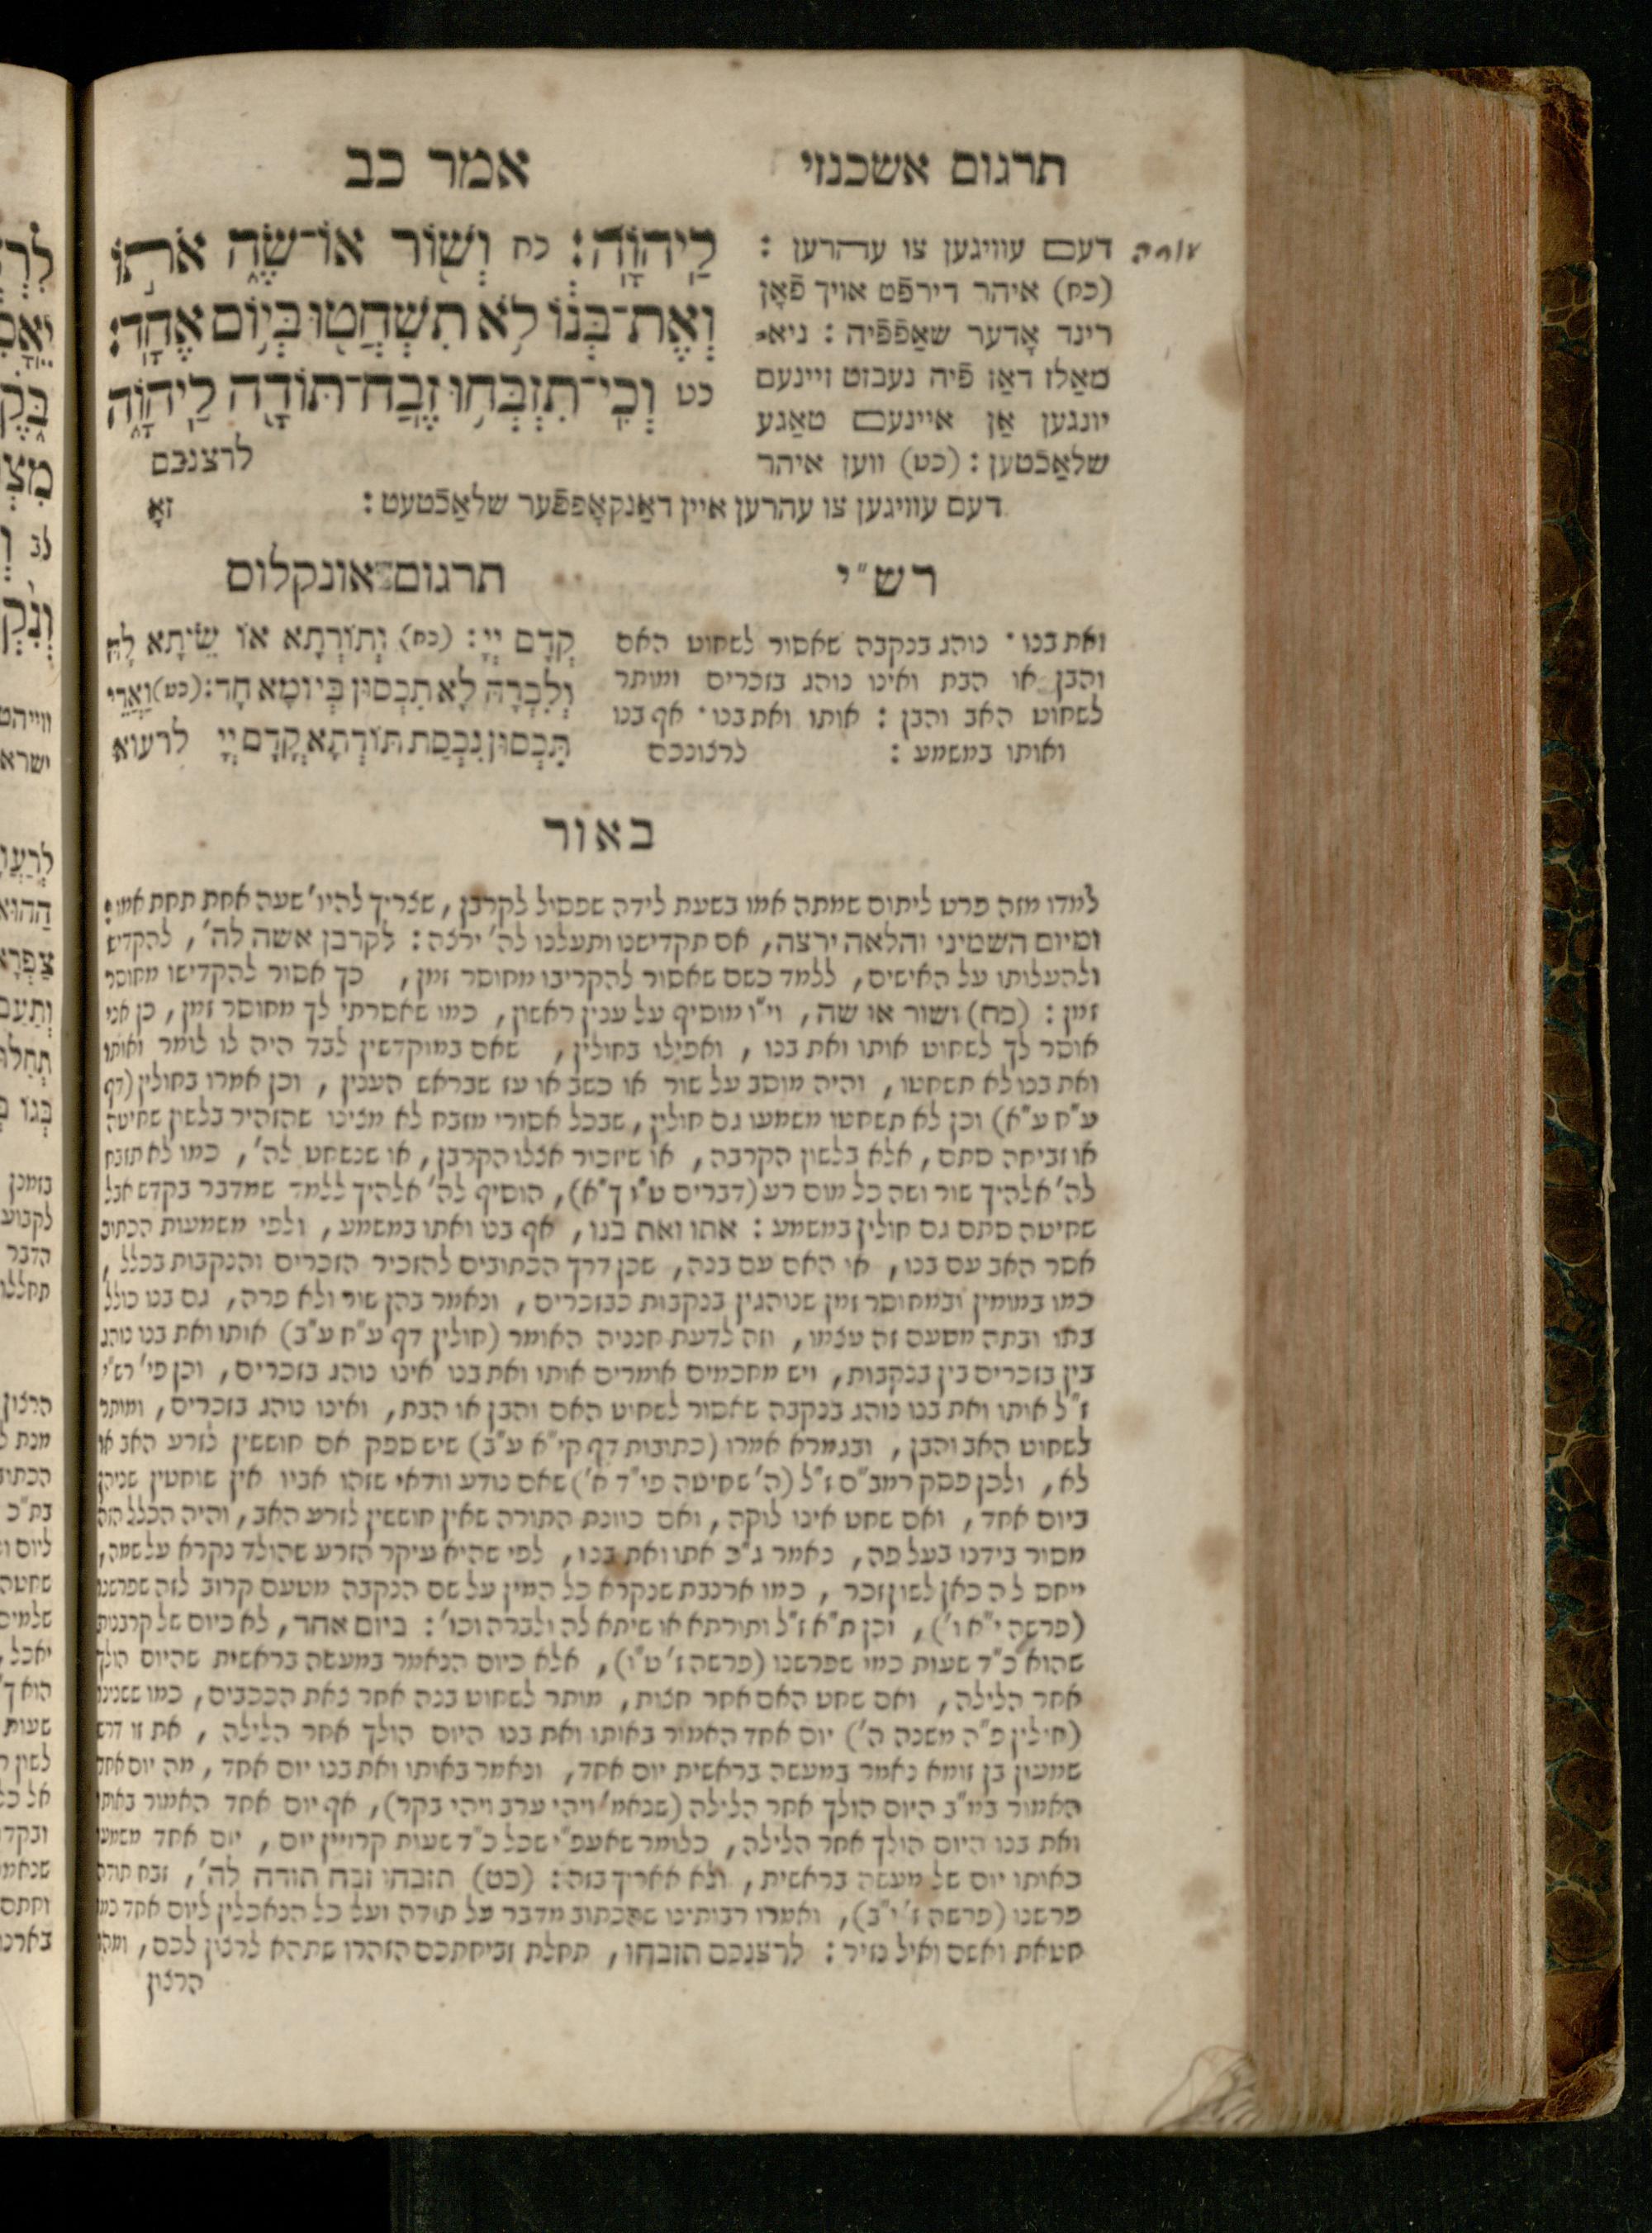 תרגום אשכנזי
אמר כב
דעם עוויגען צו עהרען :
(כח) איהר דירפֿט אויך פֿאָן
רינד אָדער שאַפֿפֿיה : ניא-
מאַלז דאַז פֿיה נעבזט זיינעם
יונגען אַן איינעם טאַגע
שלאַכֿטען : (כט) ווען איהר
דעם עוויגען צו עהרען איין דאַנקאָפפֿער שלאַכֿטעט :
זאָ
לַיהוָֽה׃ כח וְשׁ֖וֹר אוֹ־שֶׂ֑ה אֹת֣וֹ
וְאֶת־בְּנ֔וֹ לֹ֥א תִשְׁחֲט֖וּ בְּי֥וֹם אֶחָֽד׃
כט וְכִֽי־תִזְבְּח֥וּ זֶֽבַח־תּוֹדָ֖ה לַיהוָ֑ה
לרצנכם
רש"י
ואת בנו · נוהג בנקבה שאסור לשחוט האם
והבן או הבת ואינו נוהג בזכרים ומותר
לשחוט האב והבן : אותו ואת בנו · אף בנו
ואותו במשמע :
לרצונכם
תרגום אונקלוס
קְדָם יְיָ: (כח) וְתוֹרְתָא אוֹ שֵׂיתָא לָהּ
וְלִבְרָהּ לָא תִכְסוּן בְּיוֹמָא חָד: (כט) וַאֲרֵי
תִּכְסוּן נִכְסַת תּוֹדְתָא קֳדָם יְיָ
לרעוא
באור
למדו מזה פרט ליתום שמתה אמו בשעת לידה שפסול לקרבן, שצריך להיו' שעה אחת תחת אמו :
ומיום השמיני והלאה ירצה, אם תקדישנו ותעלנו לה' ירצה : לקרבן אשה לה', להקדיש
ולהעלותו על האישים, ללמד כשם שאסור להקריבו מחוסר זמן, כך אסור להקדישו מחוסר
זמן : (כח) ושור או שה, וי"ו מוסיף על ענין ראשון, כמו שאסרתי לך מחוסר זמן, כן אני
אוסר לך לשחוט אותו ואת בנו, ואפילו בחולין, שאם במוקדשין לבד היה לו לומר ואותו
ואת בנו לא תשחטו, והיה מוסב על שור או כשב או עז שבראש הענין, וכן אמרו בחולין (דף
ע"ח ע"א) וכן לא תשחטו משמעו גם חולין, שבכל אסורי מזבח לא מצינו שהזהיר בלשון שחיטה
או זביחה סתם, אלא בלשון הקרבה, או שיזכור אצלו הקרבן, או שנשחט לה', כמו לא תזבח
לה' אלהיך שור ושה כל מום רע (דברים ט"ו ך"א), הוסיף לה' אלהיך ללמד שמדבר בקדש אבל
שחיטה סתם גם חולין במשמע : אתו ואת בנו, אף בנו ואתו במשמע, ולפי משמעות הכתוב
אסר האב עם בנו, או האם עם בנה, שכן דרך הכתובים להזכיר הזכרים והנקבות בכלל,
כמו במומין ובמחוסר זמן שנוהגין בנקבות כבזכרים, ונאמר בהן שור ולא פרה, גם בנו כולל
בתו ובתה מטעם זה עצמו, וזה לדעת חנניה האומר (חולין דף ע"ח ע"ב) אותו ואת בנו נוהג
בין בזכרים בין בנקבות, ויש מחכמים אומרים אותו ואת בנו אינו נוהג בזכרים, וכן פי' רש"י
ז"ל אותו ואת בנו נוהג בנקבה שאסור לשחוט האם והבן או הבת, ואינו נוהג בזכרים, ומותר
לשחוט האב והבן, ובגמרא אמרו (כתובות דף קי"א ע"ב) שיש ספק אם חוששין לזרע האב או
לא, ולכן פסק רמב"ם ז"ל (ה' שחיטה פי"ד א') שאם נודע וודאי שזהו אביו אין שוחטין שניהן
ביום אחד, ואם שחט אינו לוקה, ואם כוונת התורה שאין חוששין לזרע האב, והיה הכלל הזה
מסור בידנו בעל פה, נאמר ג"כ אתו ואת בנו, לפי שהיא עיקר הזרע שהולד נקרא על שמה,
ייחס לה כאן לשון זכר, כמו ארנבת שנקרא כל המין על שם הנקבה מטעם קרוב לזה שפרשנו
(פרשה י"א ו'), וכן ת"א ז"ל ותורתא או שיתא לה ולברה וכו' : ביום אחד, לא כיום של קרבנות
שהוא כ"ד שעות כמו שפרשנו (פרשה ז' ט"ו), אלא כיום הנאמר במעשה בראשית שהיום הולך
אחר הלילה, ואם שחט האם אחר חצות, מותר לשחוט בנה אחר צאת הככבים, כמו ששנינו
(חולין פ"ה משנה ה') יום אחד האמור באותו ואת בנו היום הולך אחר הלילה, את זו דרש
שמעון בן זומא נאמר במעשה בראשית יום אחד, ונאמר באותו ואת בנו יום אחד, מה יום אחד
האמור במ"ב היום הולך אחר הלילה (שנאמ' ויהי ערב ויהי בקר), אף יום אחד האמור באותו
ואת בנו היום הולך אחר הלילה, כלומר שאעפ"י שכל כ"ד שעות קרויין יום, יום אחד משמעו
כאותו יום של מעשה בראשית, ולא אאריך בזה : (כט) תזבחו זבח תודה לה', זבח תודה
פרשנו (פרשה ז' י"ב), ואמרו רבותינו שהכתוב מדבר על תודה ועל כל הנאכלין ליום אחד כמו
חטאת ואשם ואיל נזיר : לרצנכם תזבחו, תחלת זביחתכם הזהרו שתהא לרצון לכם, ומהו
הרצון